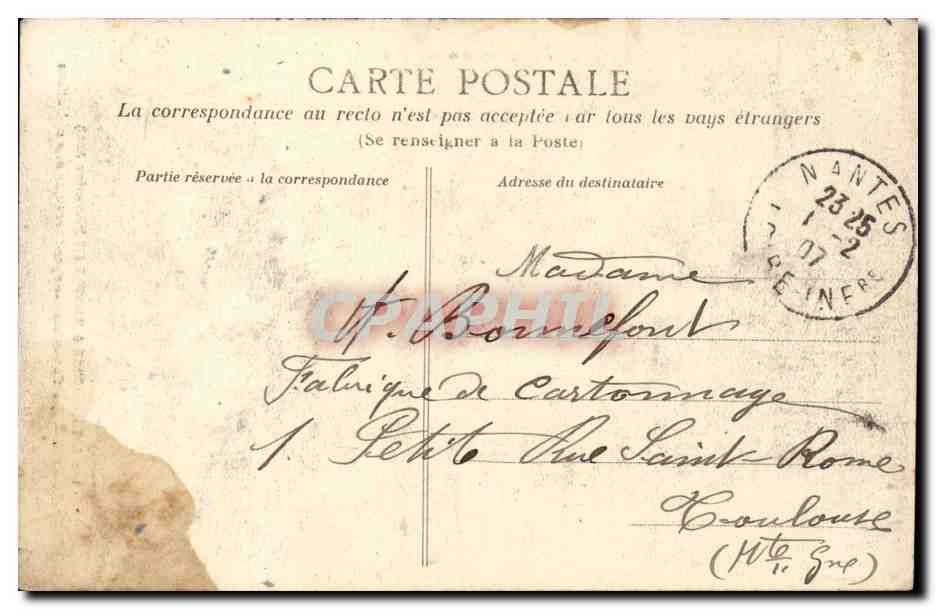 CARTE POSTALE
La correspondance au recto n'est pas acceptée par tous les pays étrangers
(Se renseigner à la Poste)
Partie réservée à la correspondance
Adresse du destinataire
NANTES
23 25
1 -2
07
INFRE
Madame
A. Bonnefont
Fabrique de Cartonnage
1. Petite Rue Saint-Rome
Toulouse
(Hte Gne)
CPAPHIL